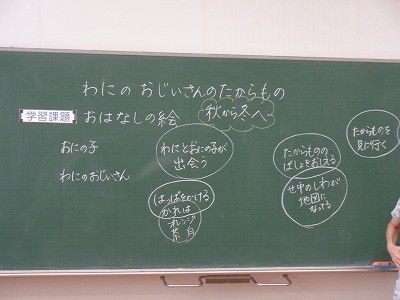 わにの おじいさんのたからもの
学習課題
おはなしの絵
秋から冬へ
おにの子
わにのおじいさん
わにとおにの子が
出会う
はっぱをかける
かれは
オレンジ
茶
たからものの
ばしょをおしえる
せ中のしわが
地図に
なってる
たからものを
見に行く